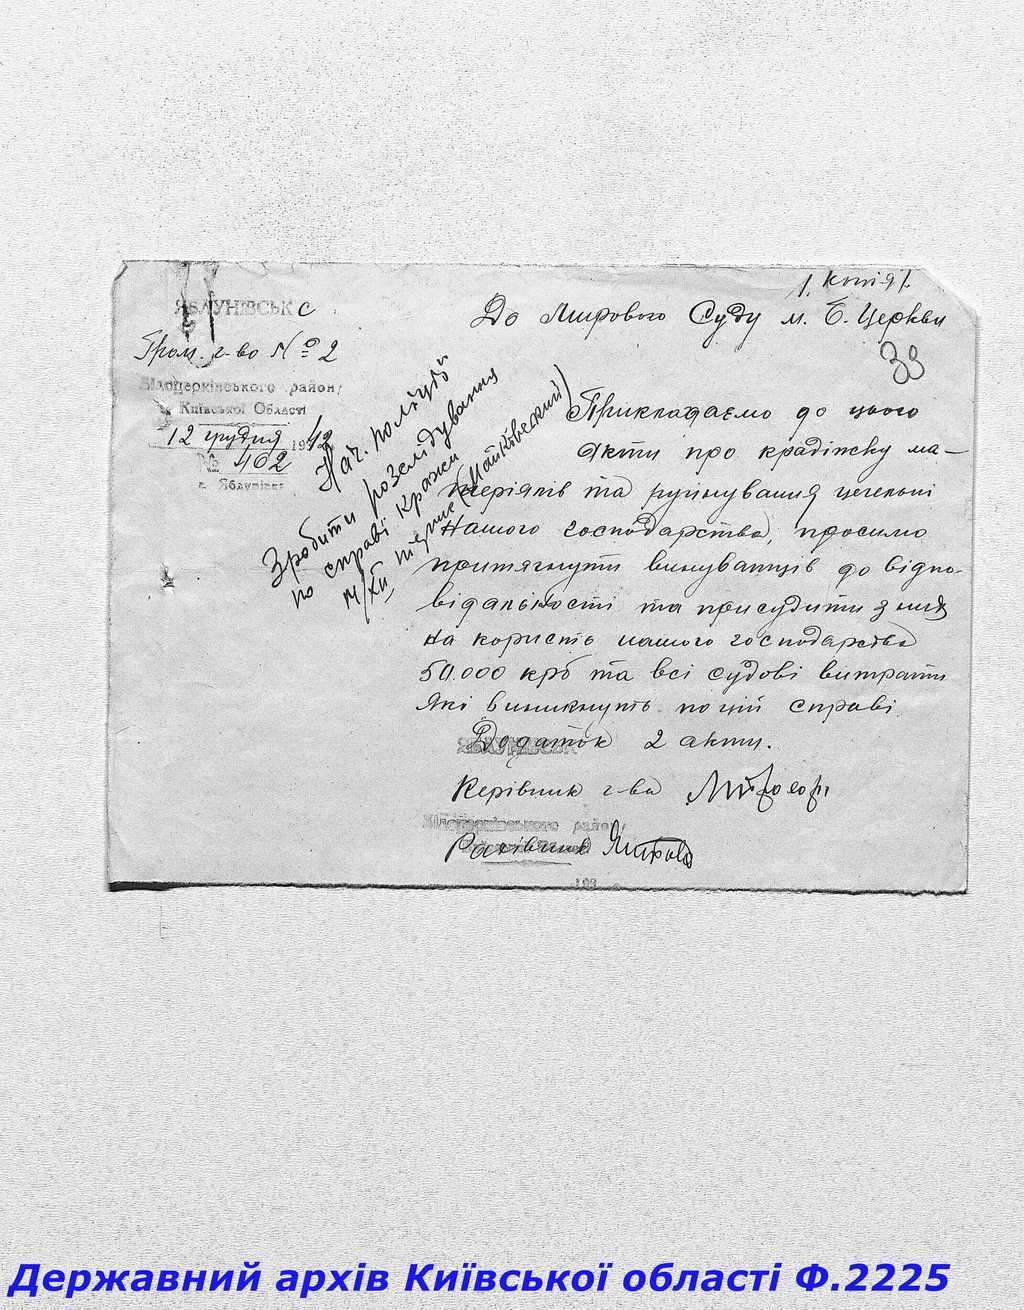 1. копія
ЯБЛУНІВСЬК с
Гром. г-во № 2
Білоцерківського району
Київської Області
12 грудня 1942
№ 402
с. Яблунівка
До Мирового Суду м. Б. Церкви
39
Нач. поліції
Зробити розслідування
по справі кражи
Прикладаємо до цього
акти про крадіжку ма-
теріялів та руйнування цегельні
нашого господарства, просимо
притягнути винуватців до відпо-
відальності та присудити з них
на користь нашого господарства
50.000 крб та всі судові витрати
які виникнуть по цій справі.
Додаток 2 акти.
Керівник г-ва
Білоцерківського району
Рахівник